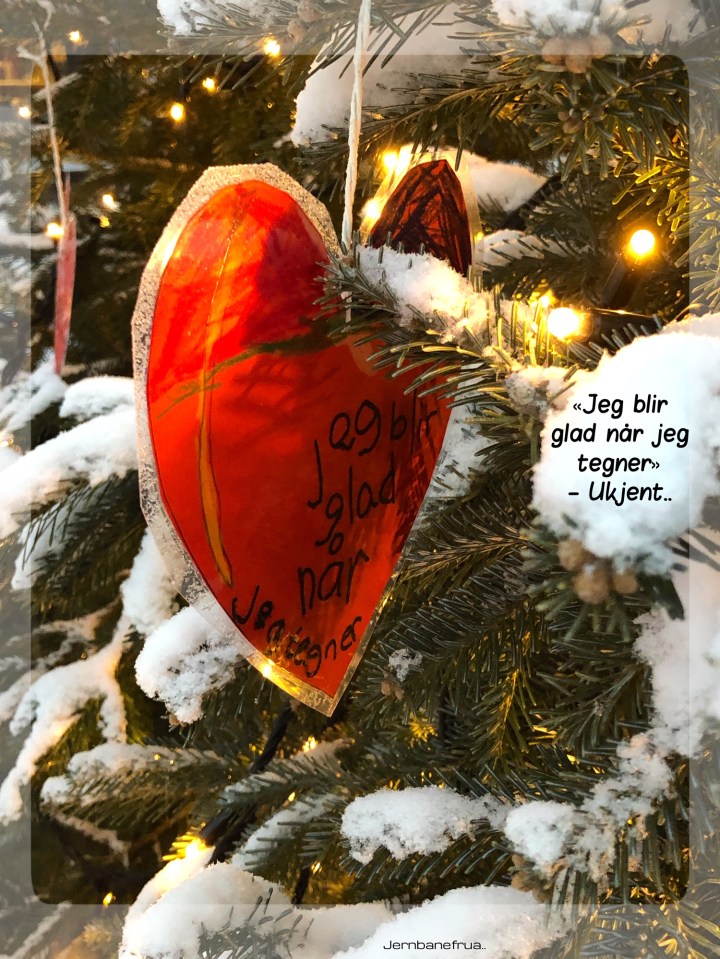 jeg blir
glad
når
Jeg tegner
«Jeg blir
glad når jeg
tegner»
- Ukjent..
Jernbanefrua..